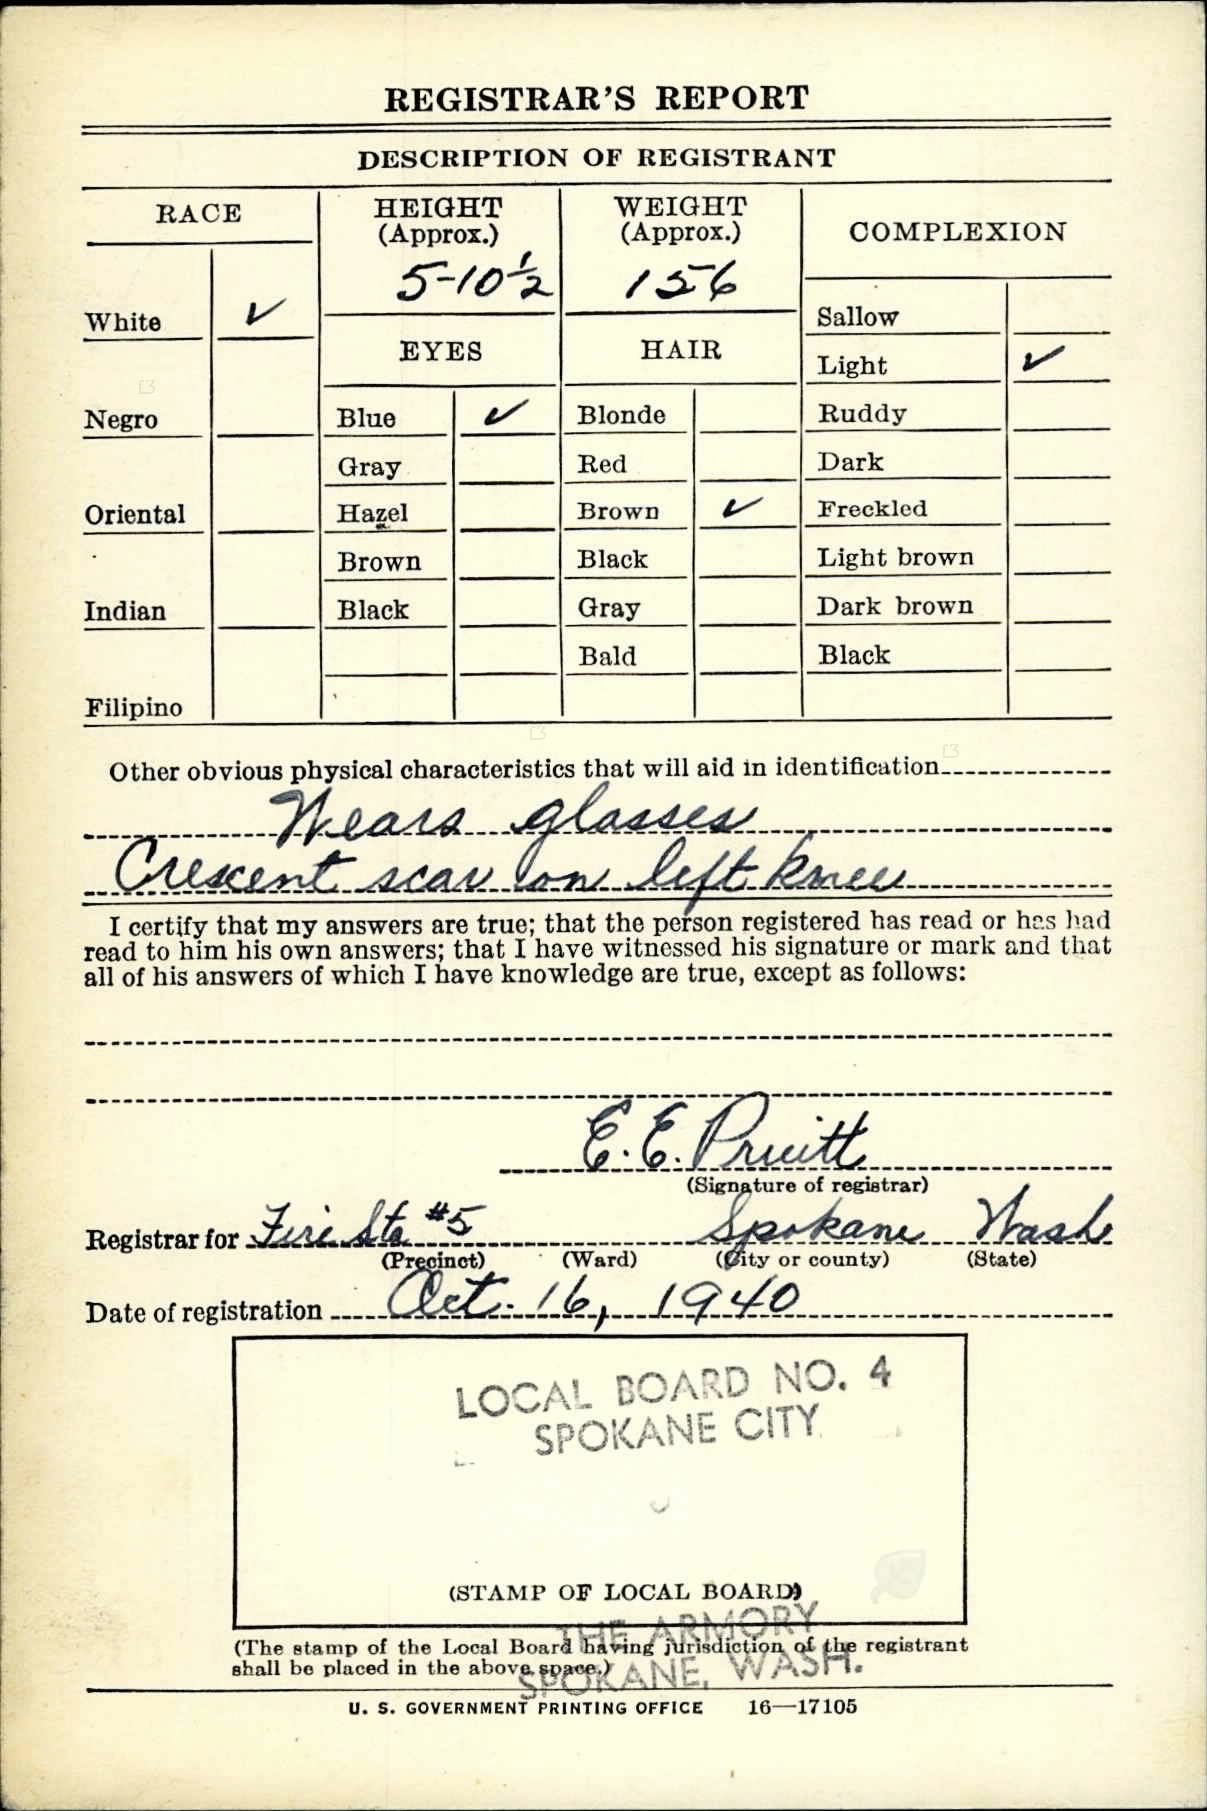 REGISTRAR'S REPORT
DESCRIPTION OF REGISTRANT
RACE
HEIGHT
(Approx.)
5-10½
WEIGHT
(Approx.)
156
COMPLEXION
White ✓
Negro
Oriental
Indian
Filipino
EYES
Blue ✓
Gray
Hazel
Brown
Black
HAIR
Blonde
Red
Brown ✓
Black
Gray
Bald
Sallow
Light ✓
Ruddy
Dark
Freckled
Light brown
Dark brown
Black
Other obvious physical characteristics that will aid in identification
Wears glasses
Crescent scar on left knee
I certify that my answers are true; that the person registered has read or has had
read to him his own answers; that I have witnessed his signature or mark and that
all of his answers of which I have knowledge are true, except as follows:
E. E. Pruitt
(Signature of registrar)
Registrar for Fire Sta #5 Spokane Wash
(Precinct) (Ward) (City or county) (State)
Date of registration Oct. 16, 1940
LOCAL BOARD NO. 4
SPOKANE CITY
(STAMP OF LOCAL BOARD)
THE ARMORY
(The stamp of the Local Board having jurisdiction of the registrant
shall be placed in the above space.)
SPOKANE, WASH.
U. S. GOVERNMENT PRINTING OFFICE 16—17105